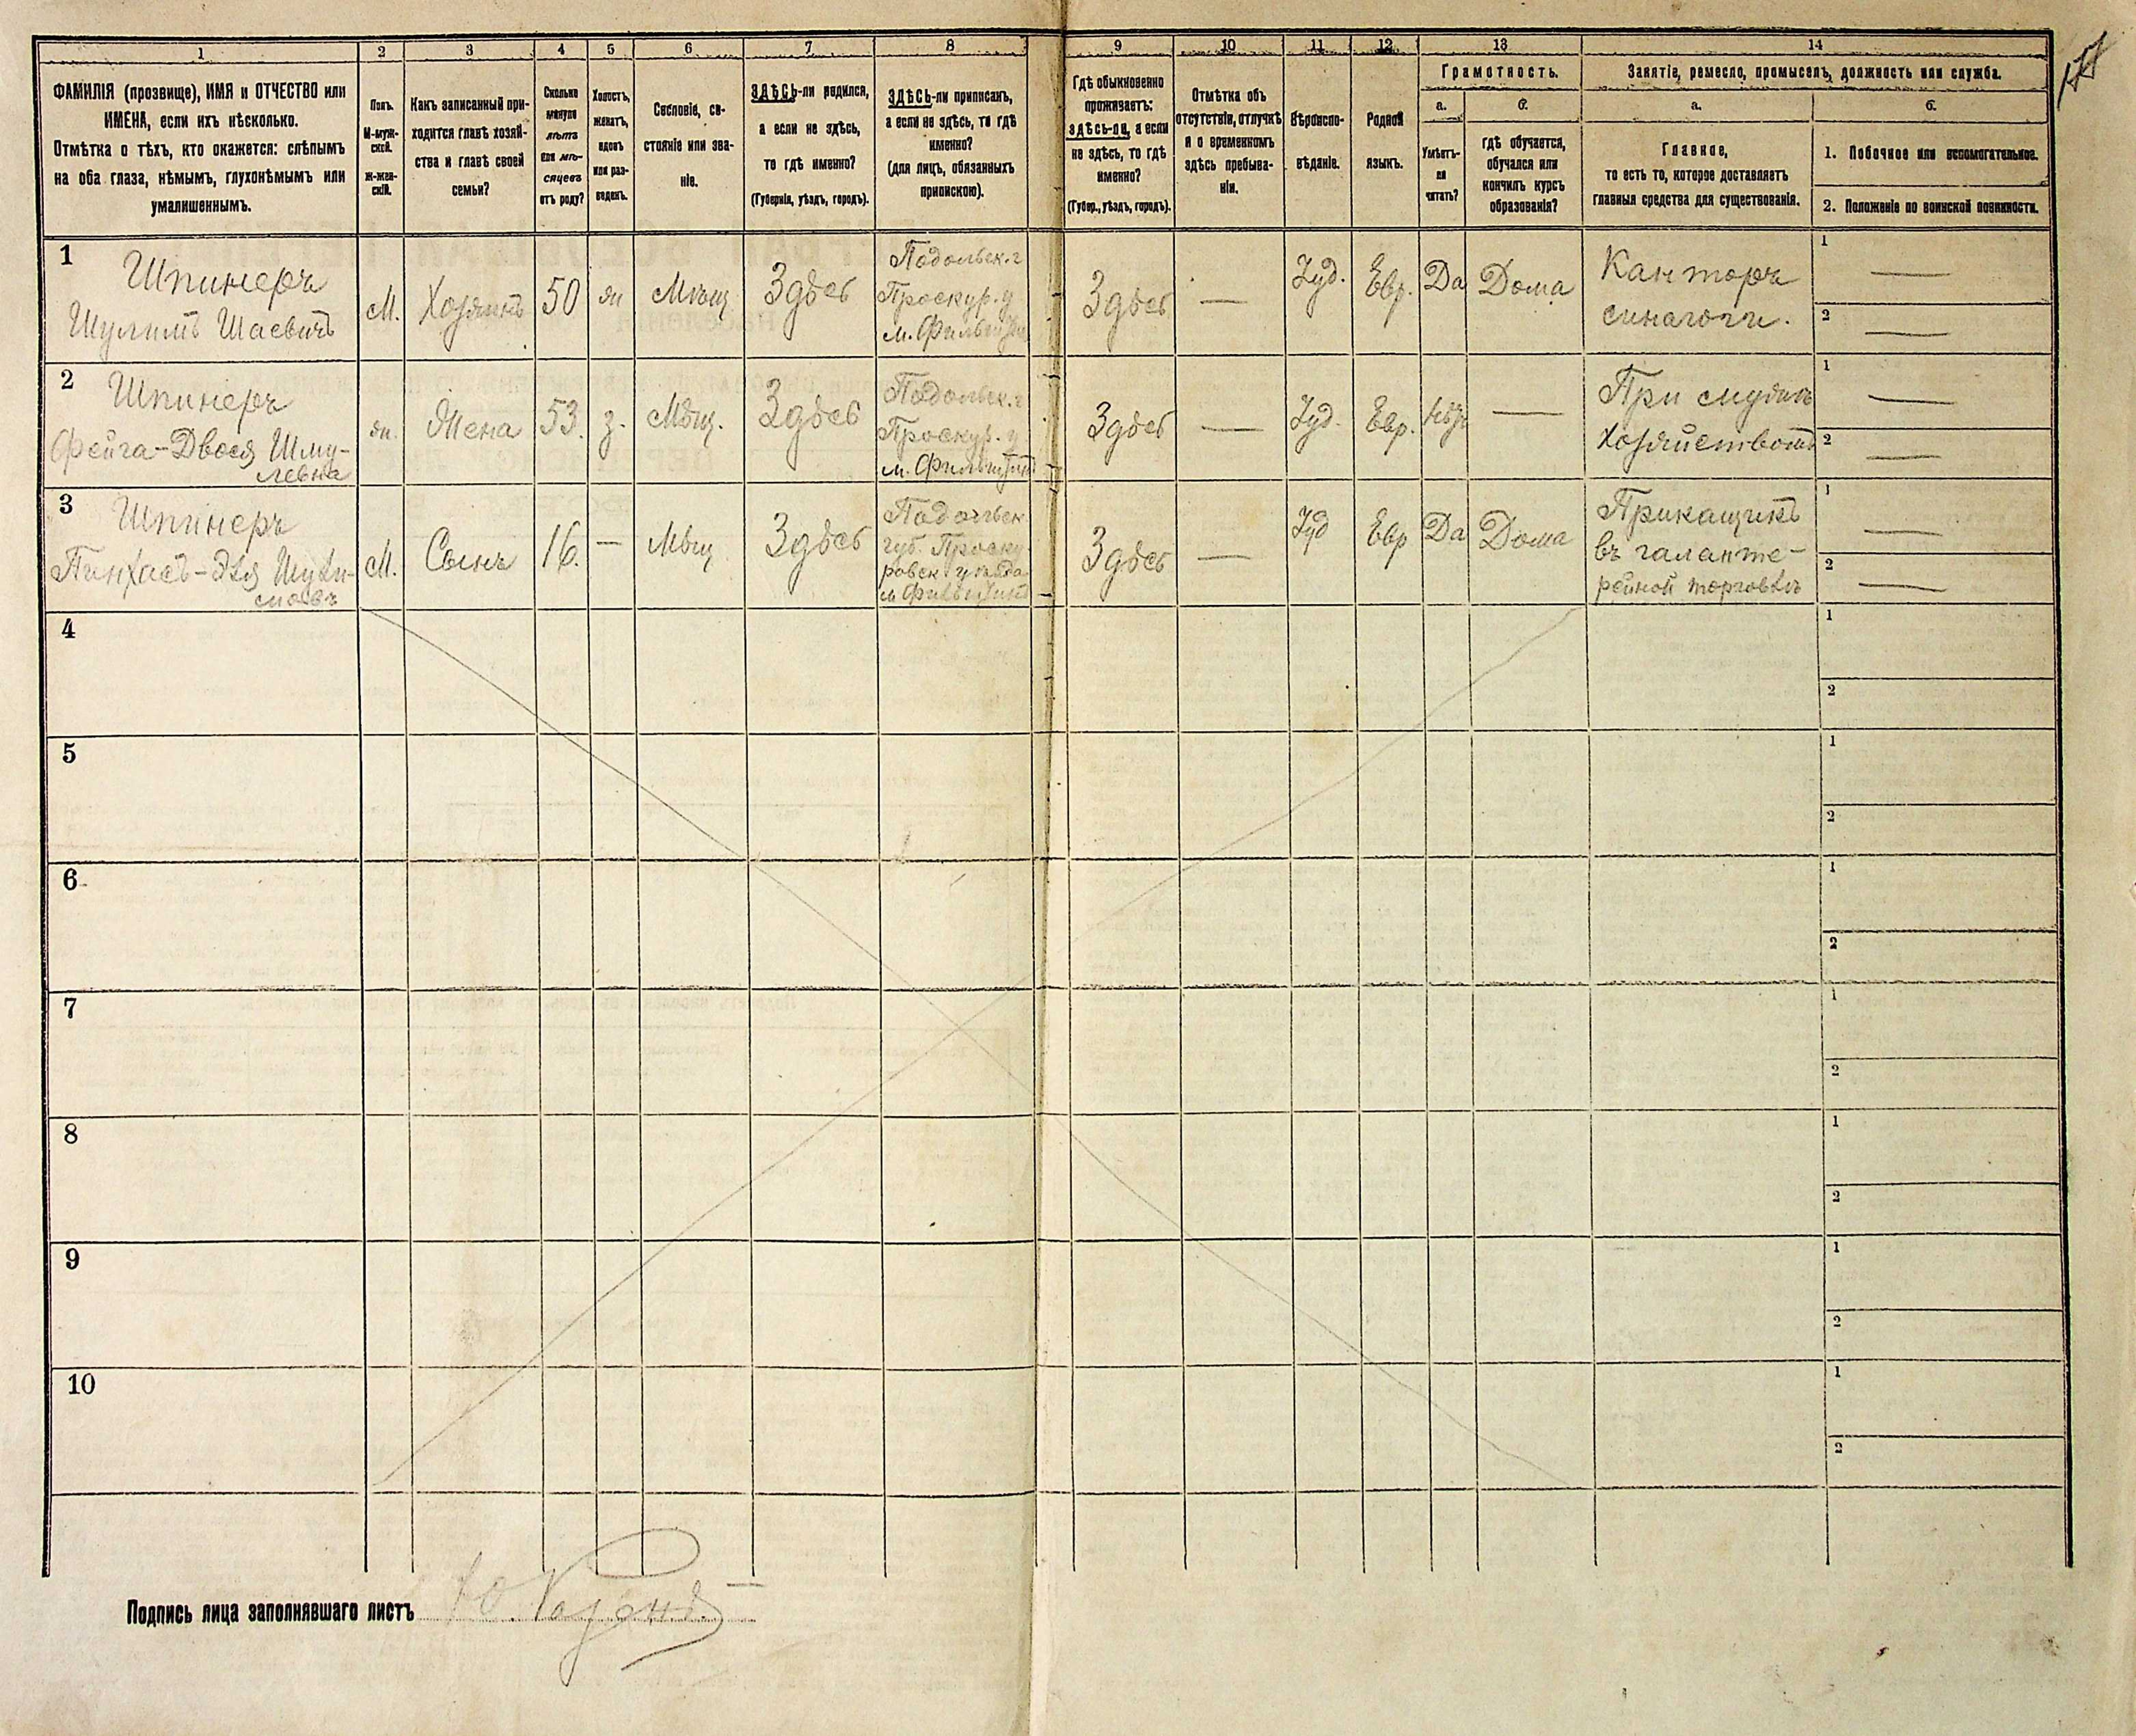 1 2 3 4 5 6 7 8 9 10 11 12 13 14
ФАМИЛІЯ (прозвище), ИМЯ и ОТЧЕСТВО или
ИМЕНА, если ихъ нѣсколько.
Отмѣтка о тѣхъ, кто окажется: слѣпымъ
на оба глаза, нѣмымъ, глухонѣмымъ или
умалишеннымъ.
Полъ.
М-муж-
ской.
ж-жен-
скій.
Какъ записанный при-
ходится главѣ хозяй-
ства и главѣ своей
семьи?
Сколько
минуло
лѣтъ
или мѣ-
сяцевъ
отъ роду?
Холостъ,
женатъ,
вдовъ
или раз-
веденъ.
Сословіе, со-
стояніе или зва-
ніе.
ЗДѢСЬ-ли родился,
а если не здѣсь,
то гдѣ именно?
(Губернія, уѣздъ, городъ).
ЗДѢСЬ-ли приписанъ,
а если не здѣсь, то гдѣ
именно?
(для лицъ, обязанныхъ
припискою).
Гдѣ обыкновенно
проживаетъ:
здѣсь-ли, а если
не здѣсь, то гдѣ
именно?
(Губер., уѣздъ, городъ).
Отмѣтка объ
отсутствіи, отлучкѣ
и о временномъ
здѣсь пребыва-
ніи.
Вѣроиспо-
вѣданіе.
Родной
языкъ.
Грамотность.
а.
Умѣетъ-
ли
читать?
б.
гдѣ обучается,
обучался или
кончилъ курсъ
образованія?
Занятіе, ремесло, промыселъ, должность или служба.
а.
Главное,
то есть то, которое доставляетъ
главныя средства для существованія.
б.
1. Побочное или вспомогательное.
2. Положеніе по воинской повинности.
1
Шпинеръ
Шулимъ Шаевичъ
М.
Хозяинъ
50
ж
Мѣщ
Здѣсь
Подольск. г
Проскур. у
м. Фильштин
Здѣсь
—
Іуд.
Евр.
Да
Дома
Канторъ
синагоги.
1 —
2 —
2
Шпинеръ
Фейга-Двося Шму-
левна
ж.
Жена
53.
з.
Мѣщ.
Здѣсь
Подольск. г
Проскур. у
м. Фильштинъ
Здѣсь
—
Іуд.
Евр.
Нѣт
—
При мужѣ
хозяйствомъ
1 —
2 —
3
Шпинеръ
Пинхасъ-Эля Шули-
мовъ
М.
Сынъ
16.
—
Мѣщ
Здѣсь
Подольск
губ. Проску-
ровск уѣзда
м Фильштинъ
Здѣсь
—
Іуд
Евр
Да
Дома
Прикащикъ
въ галанте-
рейной торговлѣ
1 —
2 —
4
1
2
5
1
2
6
1
2
7
1
2
8
1
2
9
1
2
10
1
2
Подпись лица заполнявшаго листъ